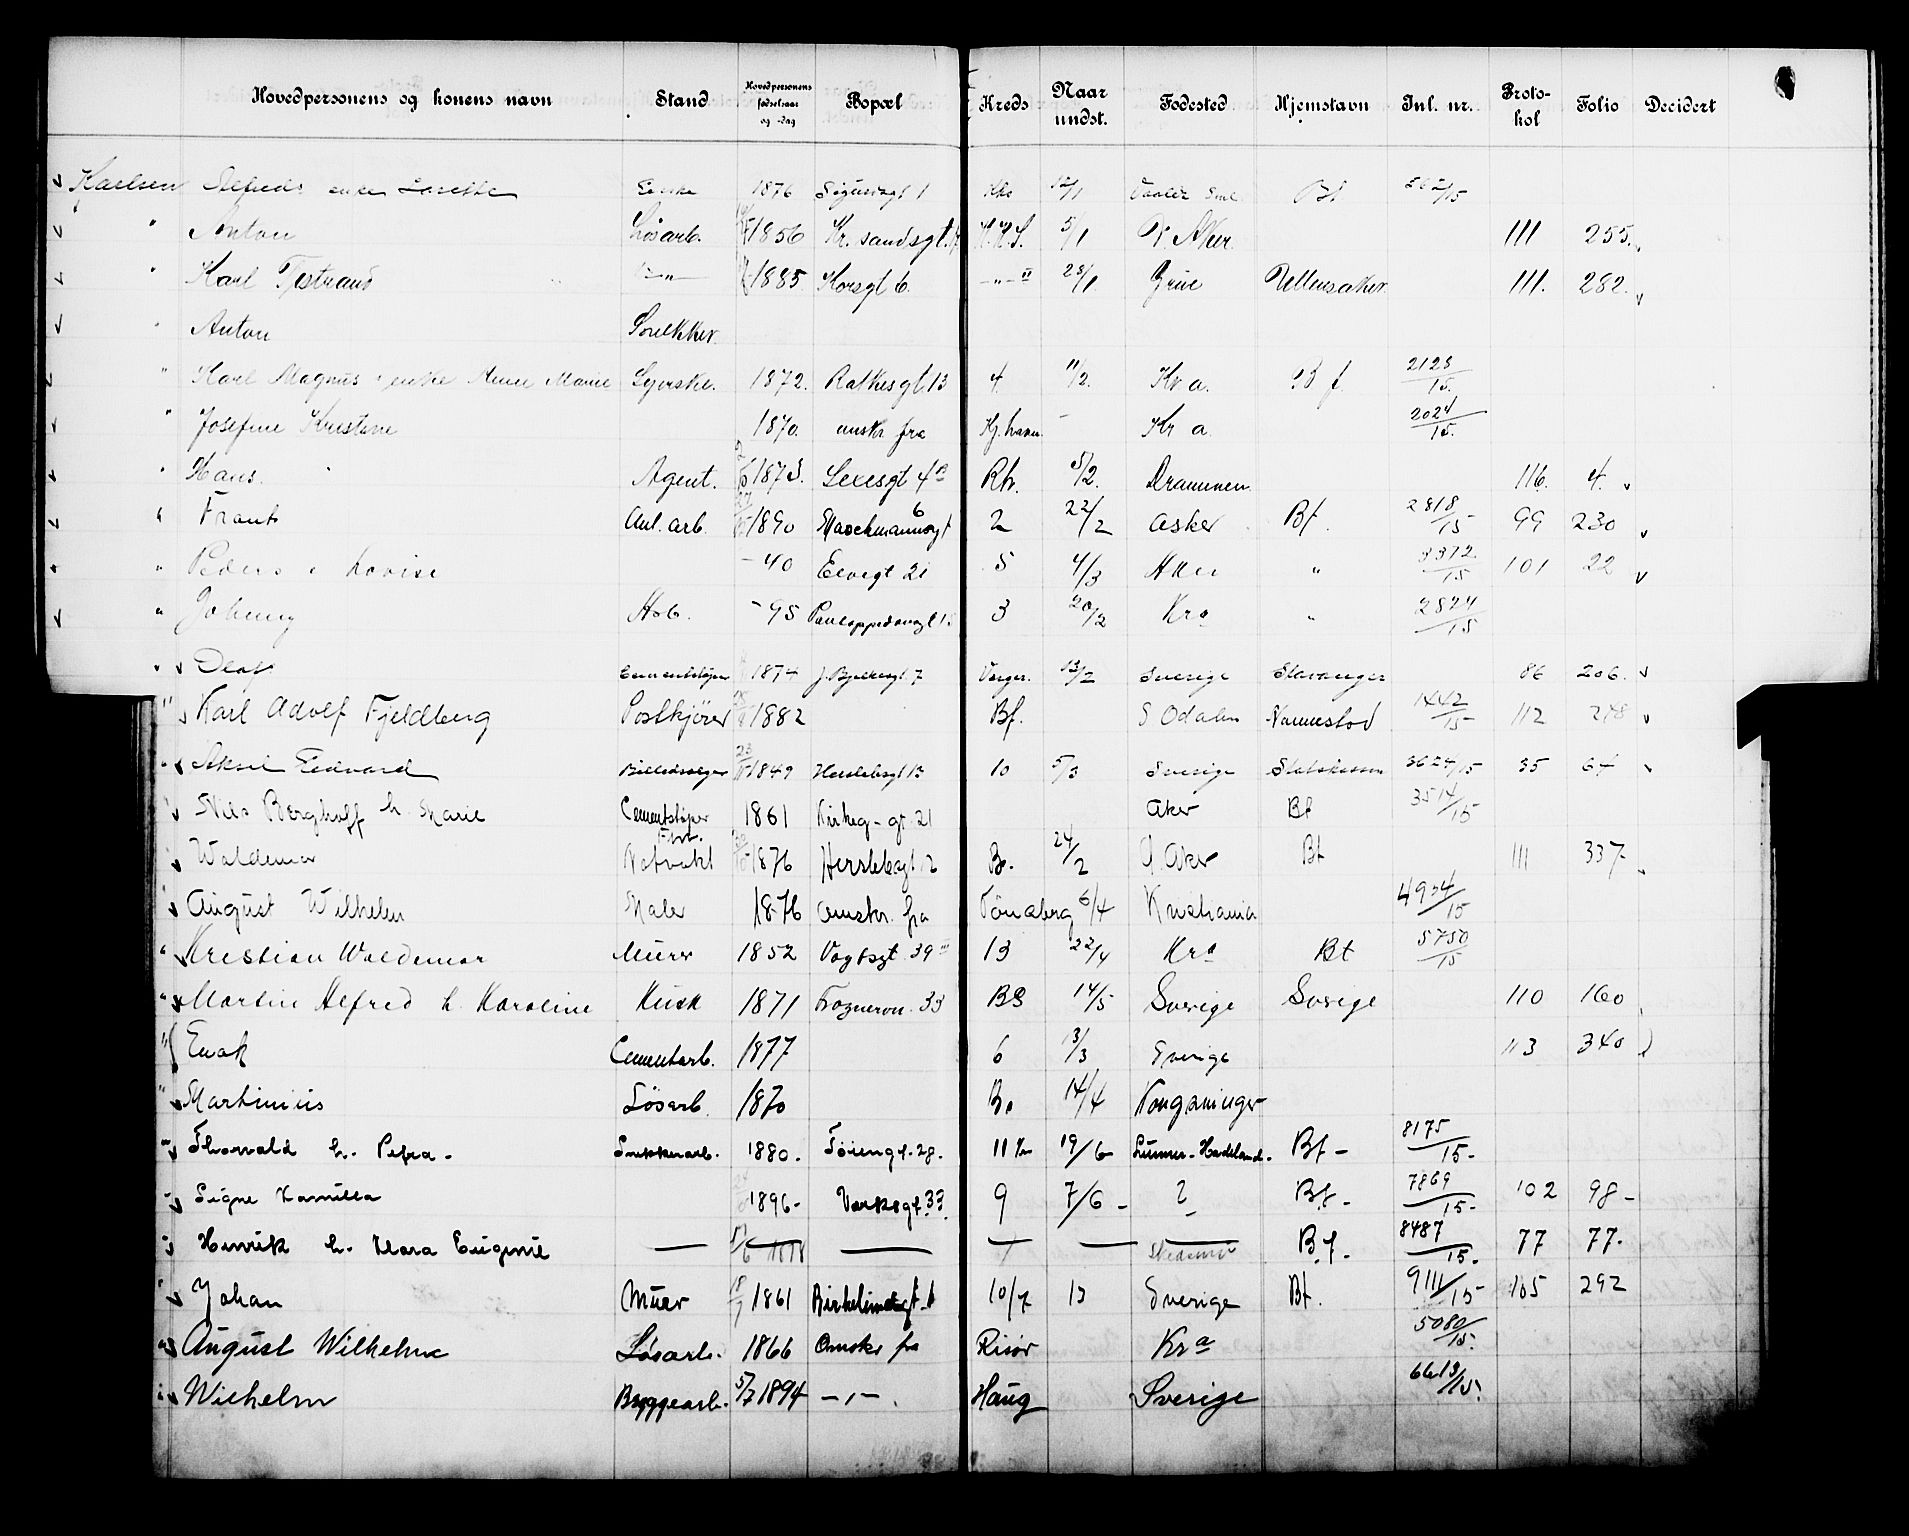 Hovedpersonens og konens navn Stand Hovedpersonens fødselsaar og -dag Bopæl Kreds Naar undst. Fødested Hjemstavn Inl. nr. Protokol Folio Decidert
Karlsen Alfreds enke 1876 1 12/1 Bf /15
" Anton Løsarb. 1856 Kr. sandsgt. 5/1 V. Aker 111 255.
" Karl Tjostrand —"— 1885. Korsgt 6. —"— 28/1 Grue Ullensaker 111. 282.
" Anton Snekker.
" Karl Magnus enke Anne Marie Syerske. 1872. Ratkesgt. 13 4. 11/2. Kr a. B f. 2123/15.
" Josefine Kristine 1870. anskr fra Kj. havn. – Kr a. 2024/15.
" Hans. Agent. 1873. 5/2. Drammen 116. 4.
" Frants Anl. arb. 1890 6 2 22/2 Asker Bf. 2818/15 99 230
" Peders e Lovise – 40 Elvegt 21 5 4/3 Aker " 3372/15 101 22
" Johnny – 95 3 20/2 Kra " 2824/15
" Olaf 1874 J. Bjelkesgt. 7 13/2 Sverige Stavanger 86 206.
" Karl Adolf Fjeldberg Postkjører 1882 Bf. S Odalen 1442/15 112 278
" Aksel Edvard 23 1849 Herslebsgt 13 10 5/3 Sverige Statskassen 3624/15 35 64
" Nils Berghoff h. Marie Cementstøper 1861 Kirkeg - gt. 21 Aker Bf 3514/15
" Waldemar Natvakt 1876 Herslebsgt. 2 Bo. 24/2 Aker Bf 111 337.
" August Wilhelm Maler 1876 Omskr. fra Tønsberg 6/4 Kristiania /15
" Kristian Waldemar Murer 1852 Vogtsgt. 39 III 13 22/4 Kra Bt 5750/15
" Martin Alfred h. Karoline Kusk 1871 Frognervn. 33 BS 14/5 Sverige Sverige 110 160
" Enok Cementarb. 1877 6 13/3 Sverige 113 340
" Martinius Løsarb. 1870 Bo 14/4 Kongsvinger
" Thorvald h. Petra. Snekkerarb. 1880. Tøiengt. 28. 11 19/6 Lunner - Hadeland. Bf – 8175/15-
" Signe Kamilla 1896- 33. 9 7/6 – ? Bf – 7869/15- 102 98 –
" Henrik h. Klara Eugenie — — — — Bf. 8487/15. 77 77.
" Johan Murer 1861 10/7 13 Sverige Bf. 9111/15 105 292
" August Wilhelm Løsarb. 1866 Omskr fra Risør Kra 5080/15.
" Wilhelm Bryggearb. 5/7 1894 – " – Haug Sverige 6613/15